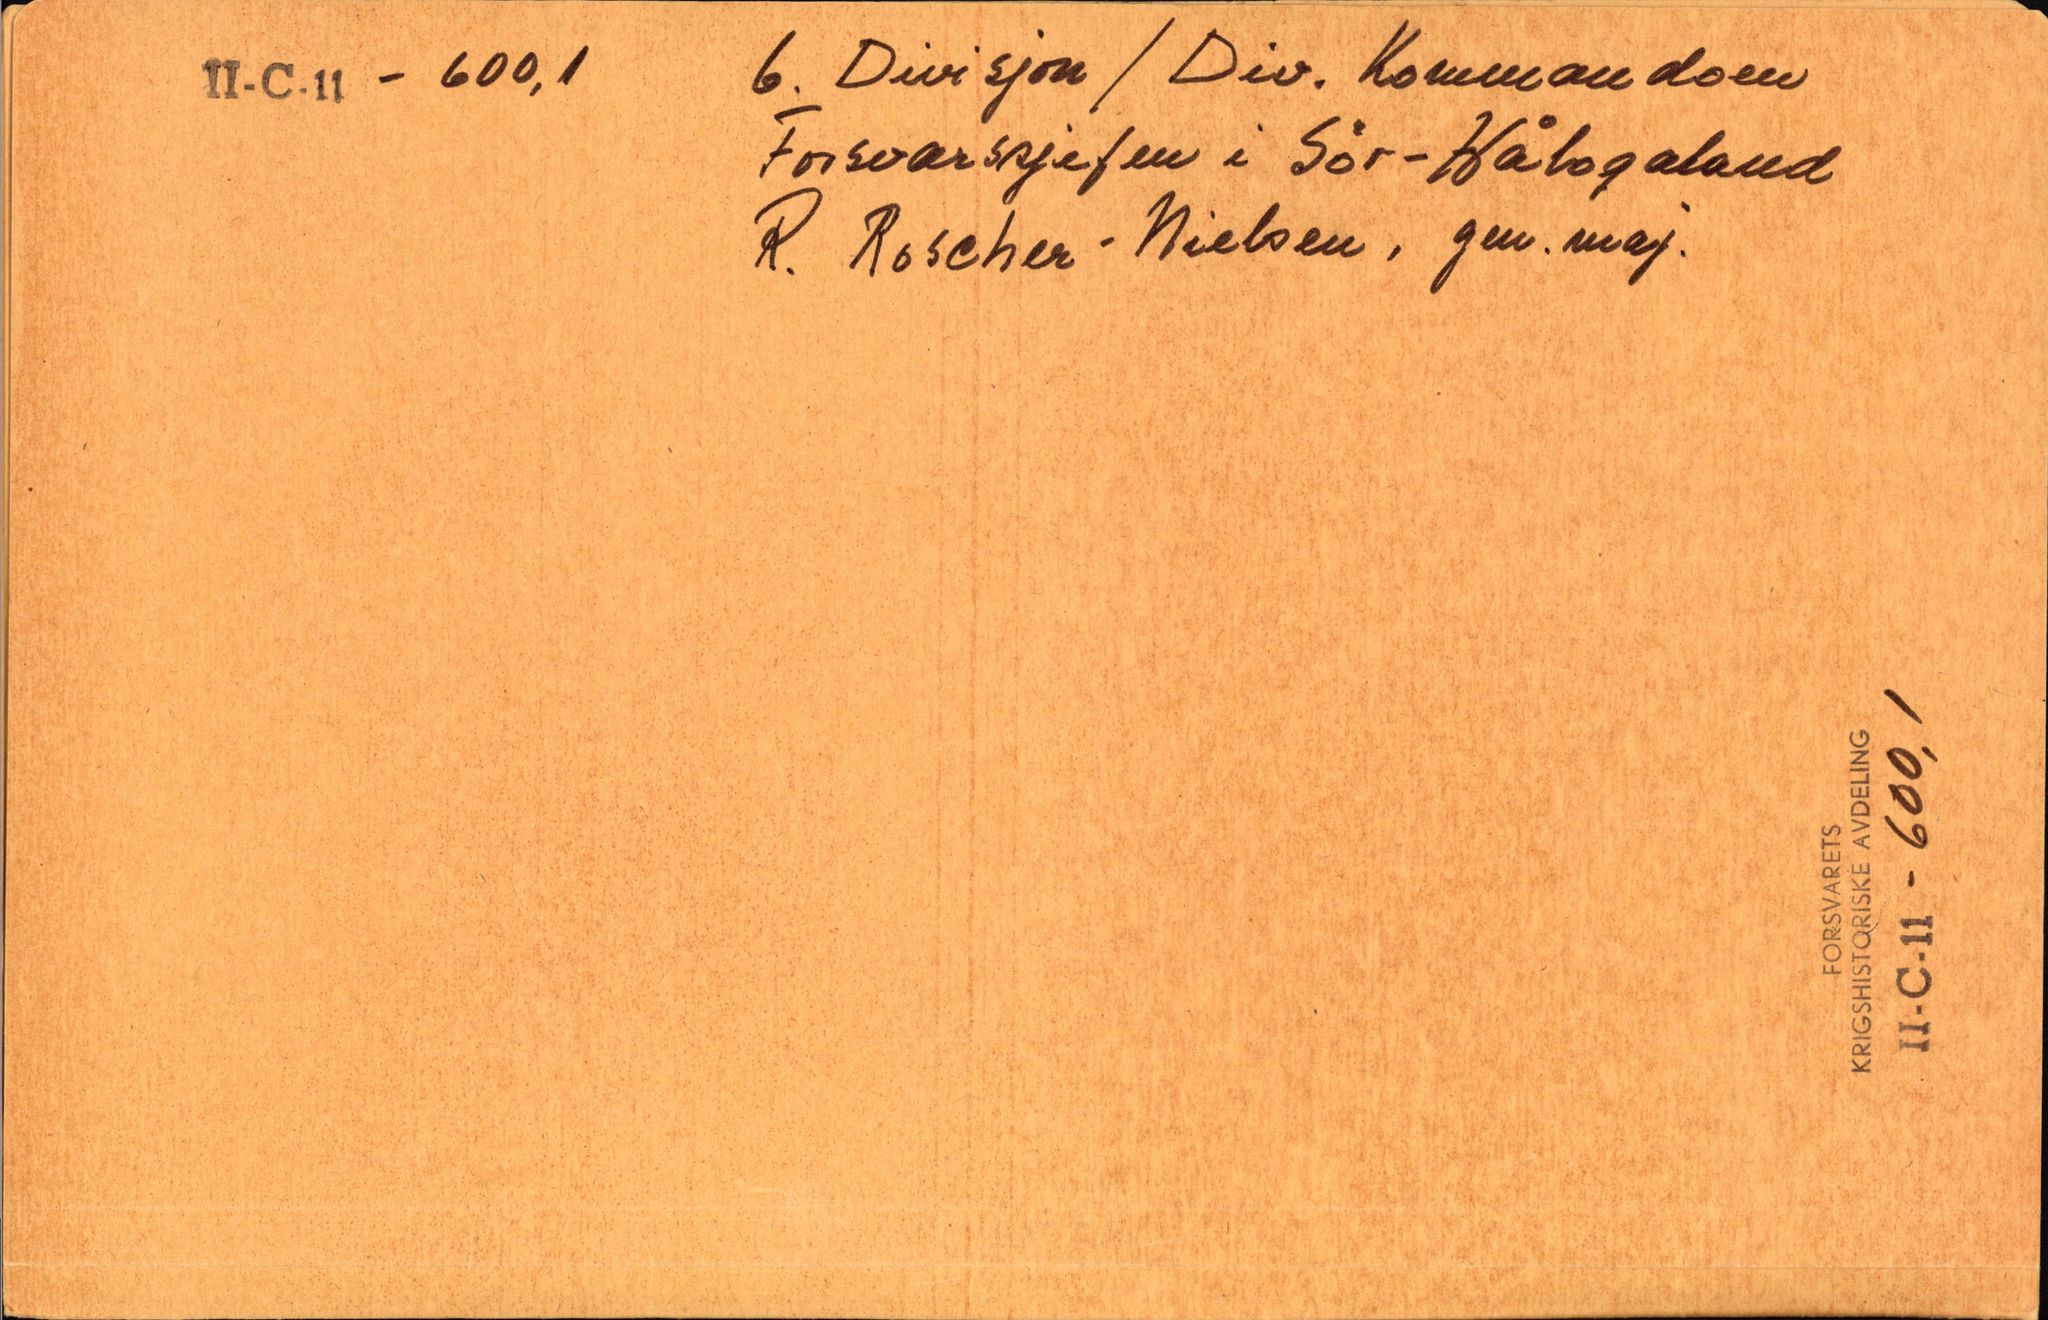 II-C-11 - 600,1
6. Divisjon / Div. Kommandoen
Forsvarssjefen i Sör-Hålogaland
R. Roscher-Nielsen, gen. maj.
FORSVARETS
KRIGSHISTORISKE AVDELING
II-C-11 - 600,1